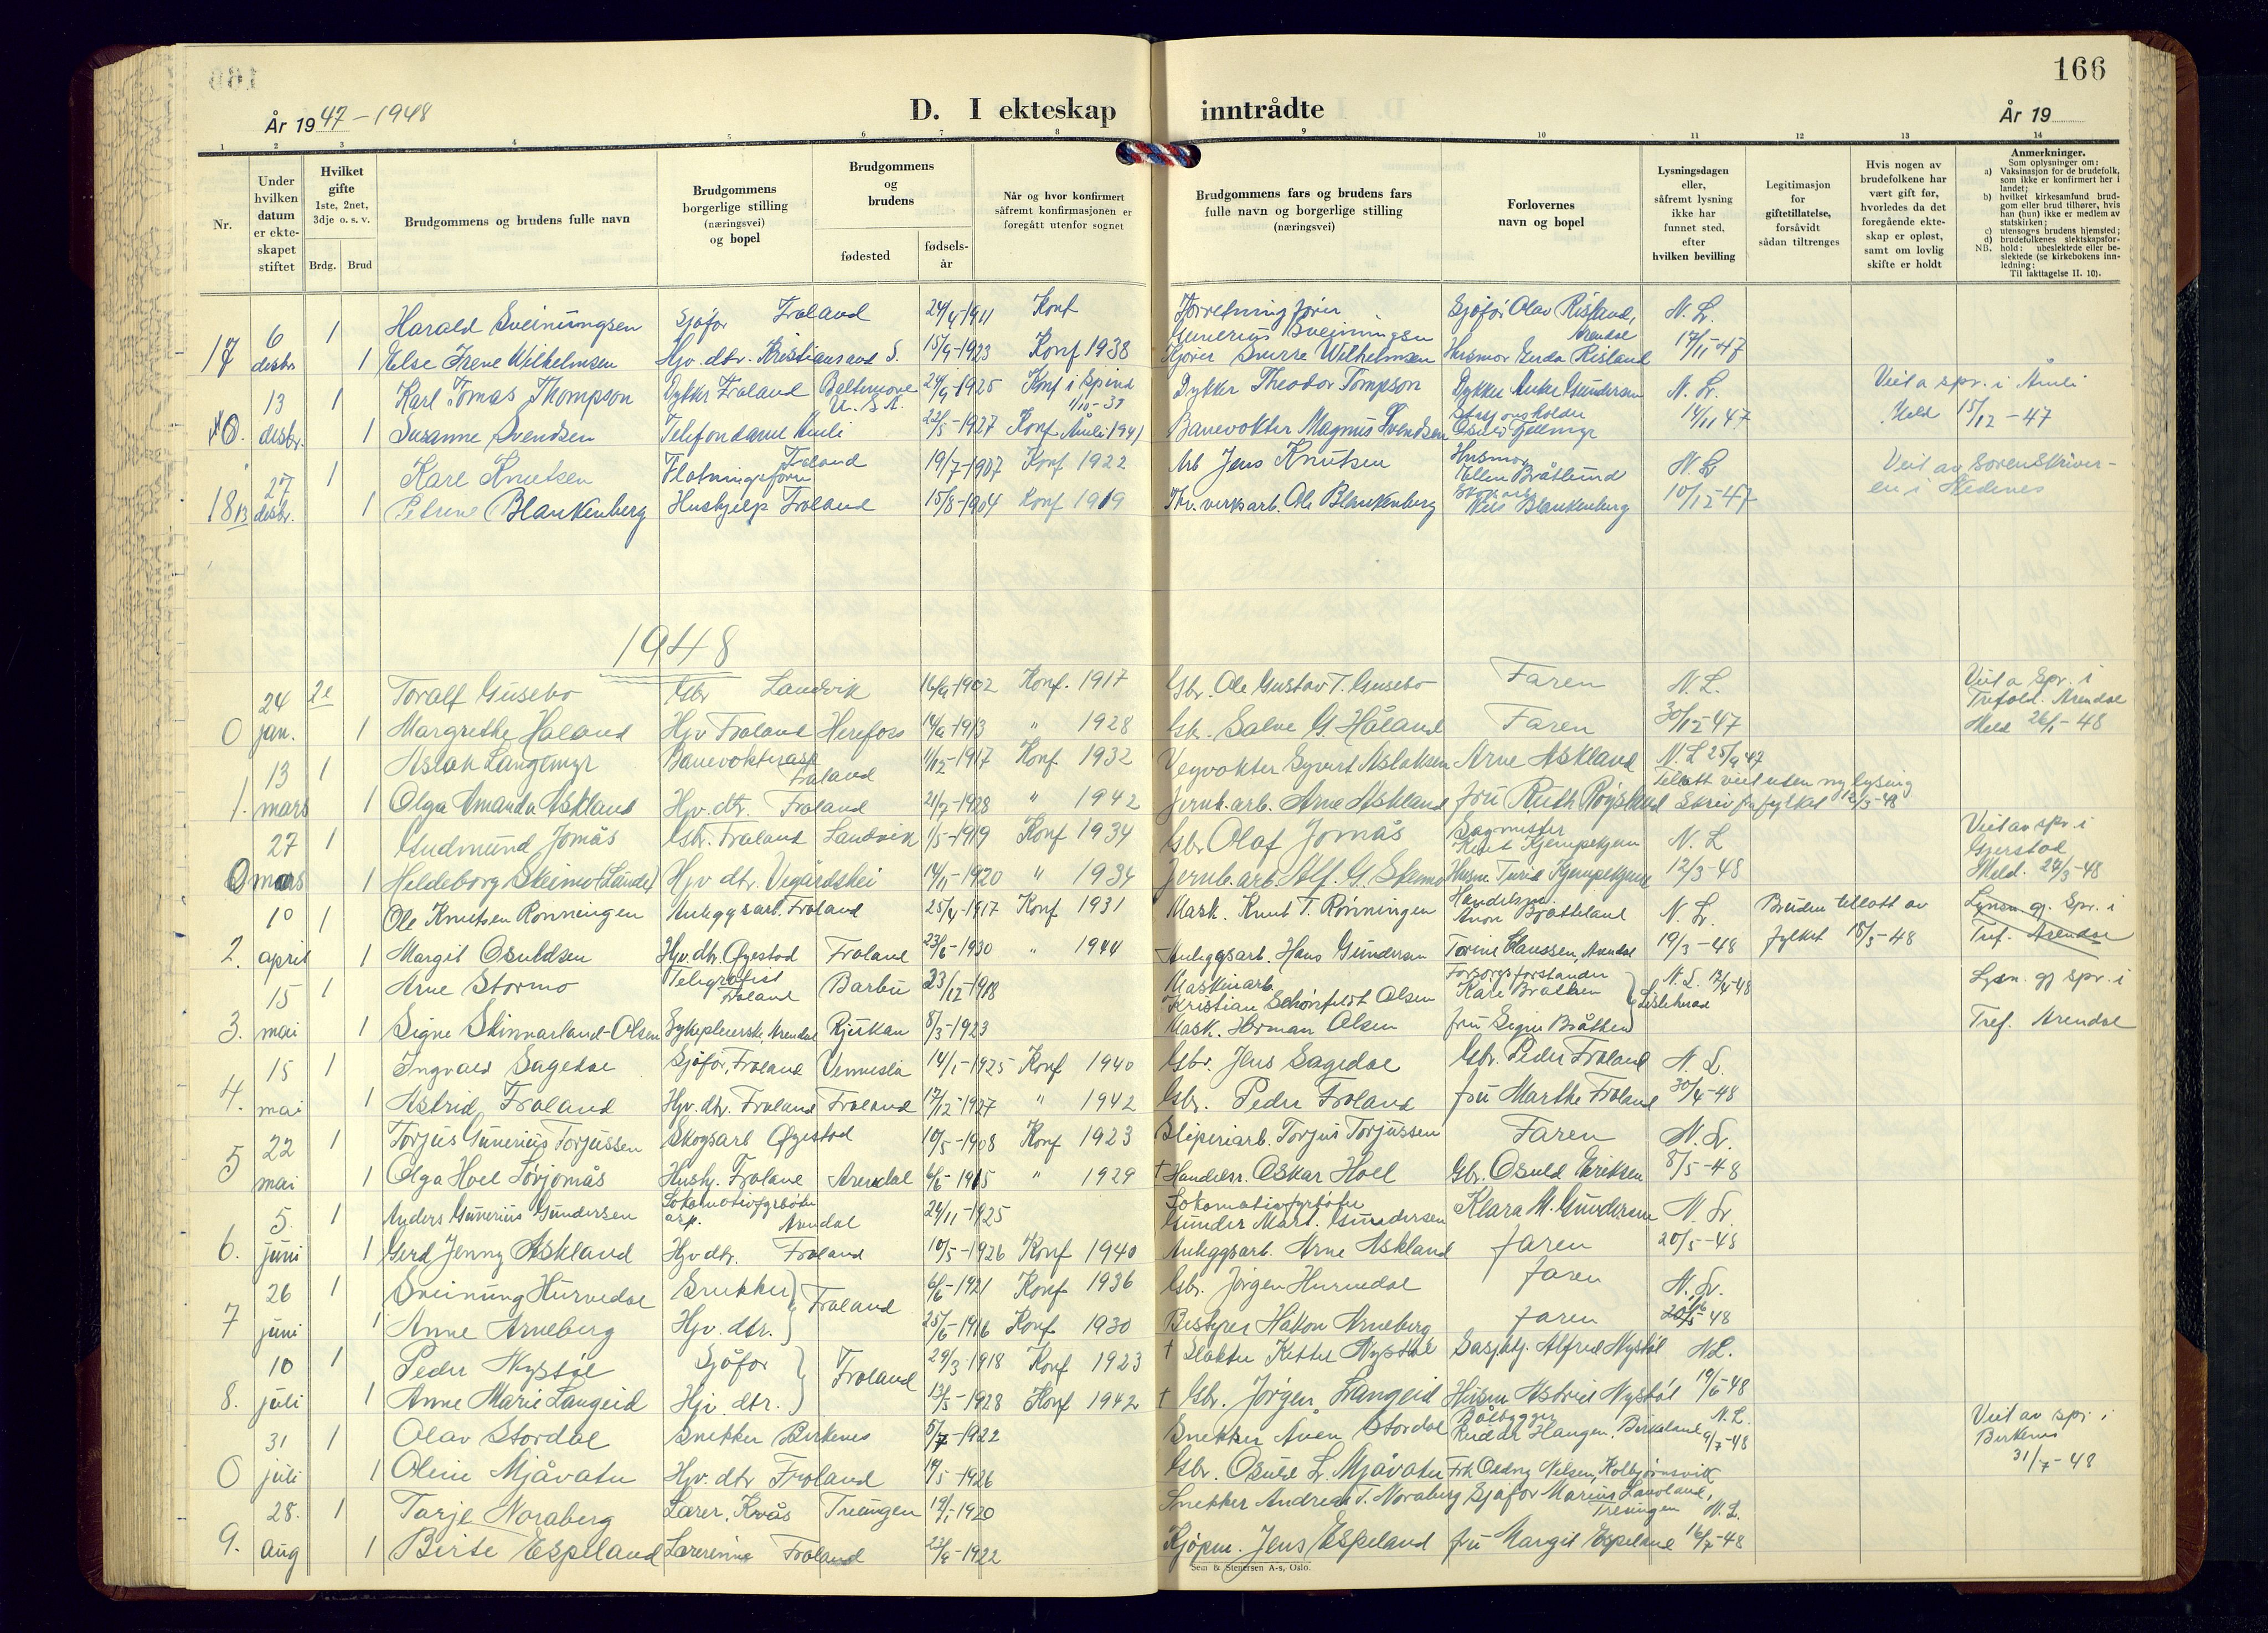 166
År 1947-1948
D. I ekteskap inntrådte
År 19
1 2 3 4 5 6 7 8 9 10 11 12 13 14
Nr.
Under hvilken datum er ekteskapet stiftet
Hvilket gifte 1ste, 2net, 3dje o. s. v.
Brdg. Brud
Brudgommens og brudens fulle navn
Brudgommens borgerlige stilling (næringsvei) og bopel
Brudgommens og brudens
fødested
fødsels-år
Når og hvor konfirmert såfremt konfirmasjonen er foregått utenfor sognet
Brudgommens fars og brudens fars fulle navn og borgerlige stilling (næringsvei)
Forlovernes navn og bopel
Lysningsdagen eller, såfremt lysning ikke har funnet sted, efter hvilken bevilling
Legitimasjon for giftetillatelse, forsåvidt sådan tiltrenges
Hvis nogen av brudefolkene har vært gift før, hvorledes da det foregående ekteskap er opløst, samt om lovlig skifte er holdt
Anmerkninger.
Som oplysninger om:
a) Vaksinasjon for de brudefolk, som ikke er konfirmert her i landet;
b) hvilket kirkesamfund brudgom eller brud tilhører, hvis han (hun) ikke er medlem av statskirken;
c) utensogns brudens hjemsted;
d) brudefolkenes slektskapsforhold: ubeslektede eller beslektede (se kirkebokens innledning;
NB. Til iakttagelse II. 10).
17 6 desbr 1 Harald Sveinungsen Sjåfør Froland 24/4-1911 Konf Forretningsfører Gunerius Sveinungsen Sjåfør Olav Risland, Arendal N. L.
1 Else Irene Wilhelmsen Hjv. dtr. Kristiansand S. 15/9-1923 Konf 1938 Kjører Sverre Wilhelmsen Husmor Gerda Risland 17/11-47
0. 13 desbr. 1 Karl Tomas Thompson Dykker Froland Baltimore U. S. A. 24/9-1925 Konf i Spind 1/10-39 Dykker Theodor Tompson Dykker Anker Gundersen N. L. Viet a spr. i Åmli
1 Susanne Svendsen Telefondame Åmli 22/5-1927 Konf. Åmli 1941 Banevokter Magnus Svendsen Stasjonsholder Osuld Tjellmyr 14/11 47 Meld 15/12-47
18 13 27 desbr. 1 Karl Knutsen Fløtningsform Froland 19/7-1907 Konf 1922 Arb Jens Knutsen Husmor Ellen Bråtlund N. L. Viet av Sorenskriver-
1 Petrine Blankenberg Hushjelp Froland 15/8-1904 Konf 1919 Thv. verksarb. Ole Blankenberg Nils Blankenberg 10/12-47 en i Nedenes
1948
0 24 jan. 2e Toralf Gusebo Gbr Landvik 16/4-1902 Konf. 1917 Gbr. Ole Gustav T. Gusebo Faren N. L. Viet a Spr. i Trefold. Arendal
1 Margrethe Håland Hjv Froland Herefoss 14/4-1913 " 1928 Gbr. Salve G. Håland Faren 30/12-47 Meld 26/1-48
1. 13 mars 1 Aslak Langemyr Banevokterasp Froland 11/12-1917 Konf 1932 Veyvokter Syvert Aslaksen Arne Askland N. L 25/9 47
1 Olga Amanda Askland Hjv. dtr. Froland 21/7-1928 " 1942 Jernb. arb. Arne Askland fru Ruth Røysland Tillatt viet uten ny lysing Skriv fra fylket 12/3-48
0 27 mars 1 Gudmund Jomås Gbr. Froland Landvik 1/5-1919 Konf 1934 Gbr Olaf Jomås Sagmester Knut Kjempekjenn N. L Viet av spr. i Gjerstad
1 Hildeborg Skeimo (Lunde) Hjv dtr. Vegårdshei 14/11-1920 " 1934 Jernb. arb. Alf. G. Skeimo Husm. Turid Kjempekjenn 12/3-48 Meld. 27/3-48
2. 10 april 1 Ole Knutsen Rønningen Anleggsarb. Froland 25/4-1917 Konf 1931 Mask. Knut T. Rønningen Aron Bråtteland N. L. Bruden tillatt av Lysn. gj. Spr. i
1 Margit Osuldsen Hjv. dtr. Øyestad Froland 23/6-1930 " 1944 Anleggsarb. Hans Gundersen Torine Clausen, Arendal 19/3-48 fylket 15/3-48 Tref. Arendal
3. 15 mai 1 Arne Stormo Telegrafist Froland Barbu 23/12-1918 Maskinarb. Kristian Schønfeldt Olsen Forsorgsforstander Kåre Bråthen N. L. 12/4-48 Lysn. gj spr. i
1 Signe Skinnarland-Olsen Sykepleierske, Arendal Rjukan 8/3-1923 Mask. Herman Olsen fru Signe Bråthen Tref. Arendal
4. 15 mai 1 Ingvald Sagedal Sjåfør, Froland Vennesla 14/1-1925 Konf 1940 Gbr. Jens Sagedal Gbr. Peder Froland N. L.
1 Astrid Froland Hjv. dtr. Froland Froland 17/12-1927 " 1942 Gbr. Peder Froland fru Marthe Froland 30/4-48
5 22 mai 1 Torjus Gunerius Torjussen Skogsarb Øyestad 10/5-1908 Konf 1923 Sliperiarb. Torjus Torjussen Faren N. L.
1 Olga Hoel Torjomås Hushj. Froland Arendal 6/6-1915 " 1929 † Handelsr. Oskar Hoel Gbr. Osuld Eriksen 8/5-48
6. 5. juni 1 Anders Gunerius Gundersen Lokomotivfyrbøter asp. Arendal 24/11-1925 Lokomotivfyrbøter Gunder Mart. Gundersen Klara M. Gundersen N. L.
1 Gerd Jenny Askland Hjv dtr. Froland 10/5-1926 Konf 1940 Anleggsarb. Arne Askland faren 20/5-48
7 26 juni 1 Sveinung Hurvedal Snekker Froland 6/6-1921 Konf 1936 Gbr. Jørgen Hurvedal faren N. L.
1 Anne Arneberg Hjv. dtr. 25/6-1916 Konf 1930 Bestyrer Håkon Arneberg faren 48
8. 10 juli 1 Peder Nystøl Sjåfør Froland 29/3-1918 Konf 1923 † Slakter Kittel Nystøl Alfred Nystøl N L.
1 Anne Marie Langeid Hjv. dtr. 13/5-1928 Konf 1942 † Gbr. Jørgen Langeid Husm Astrid Nystøl 19/6-48
0 31 juli 1 Olav Stordal Snekker Birkenes 5/7-1922 Snekker Aven Stordal Båtbygger Reidar Haugen, Birkeland N. L. 9/7-48 Viet av spr i Birkenes
1 Oline Mjåvatn Hjv. dtr Froland 14/5-1926 Gbr. Osuld L. Mjåvatn Frk Oddny Nilsen, Kolbjørnsvik 31/7-48
9. 28. aug 1 Tarje Noraberg Lærer, Kvås Treungen 19/1-1920 Snekker Andreas T. Noraberg Sjåfør Marius Lauvland, Treungen N. L.
1 Birte Espeland Lærerinne Froland 23/4-1922 Kjøpm. Jens Espeland fru Margit Espeland 16/7-48
Sem & Stenersen A-s, Oslo.